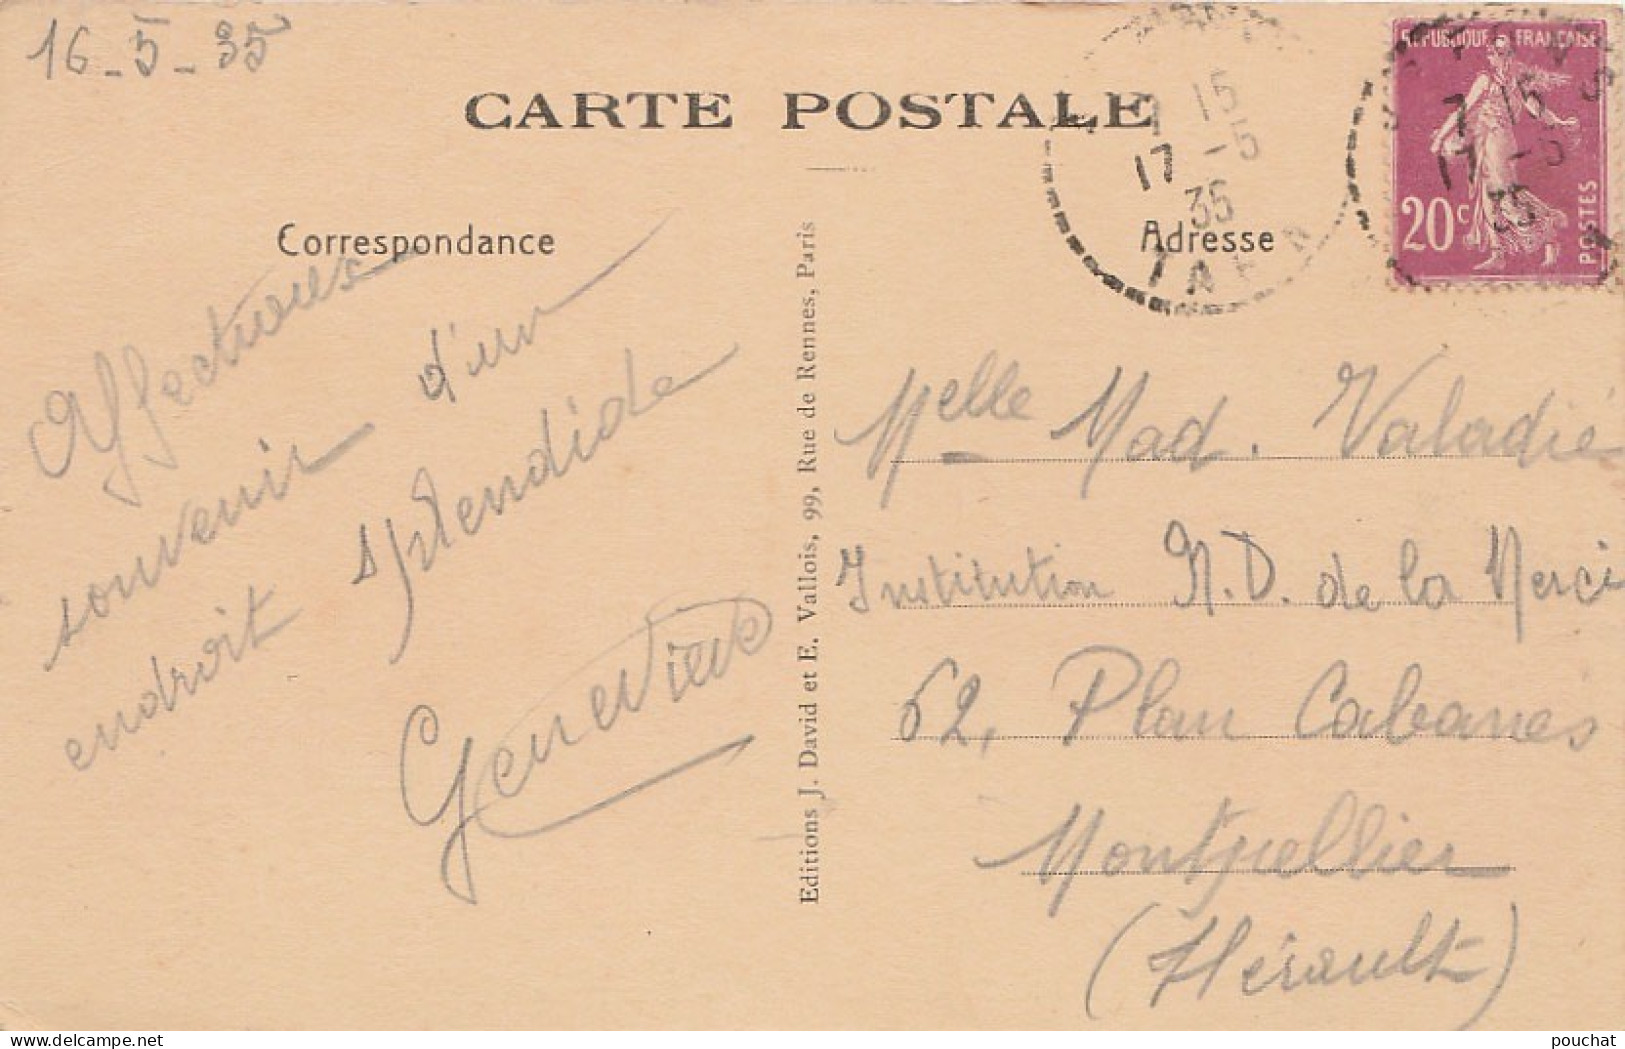 16-5-35
CARTE POSTALE
7 15
17 -5
35
TARN
REPUBLIQUE FRANÇAISE
20c
POSTES
7 15
17 -5
35
Correspondance
Adresse
Affectueux
souvenir d'un
endroit splendide
Geneviève
Editions J. David et E. Vallois, 99, Rue de Rennes, Paris
Melle Mad. Valadié
Institution N.D. de la Merci
62, Plan Cabanes
Montpellier
(Hérault)
www.delcampe.net
pouchat